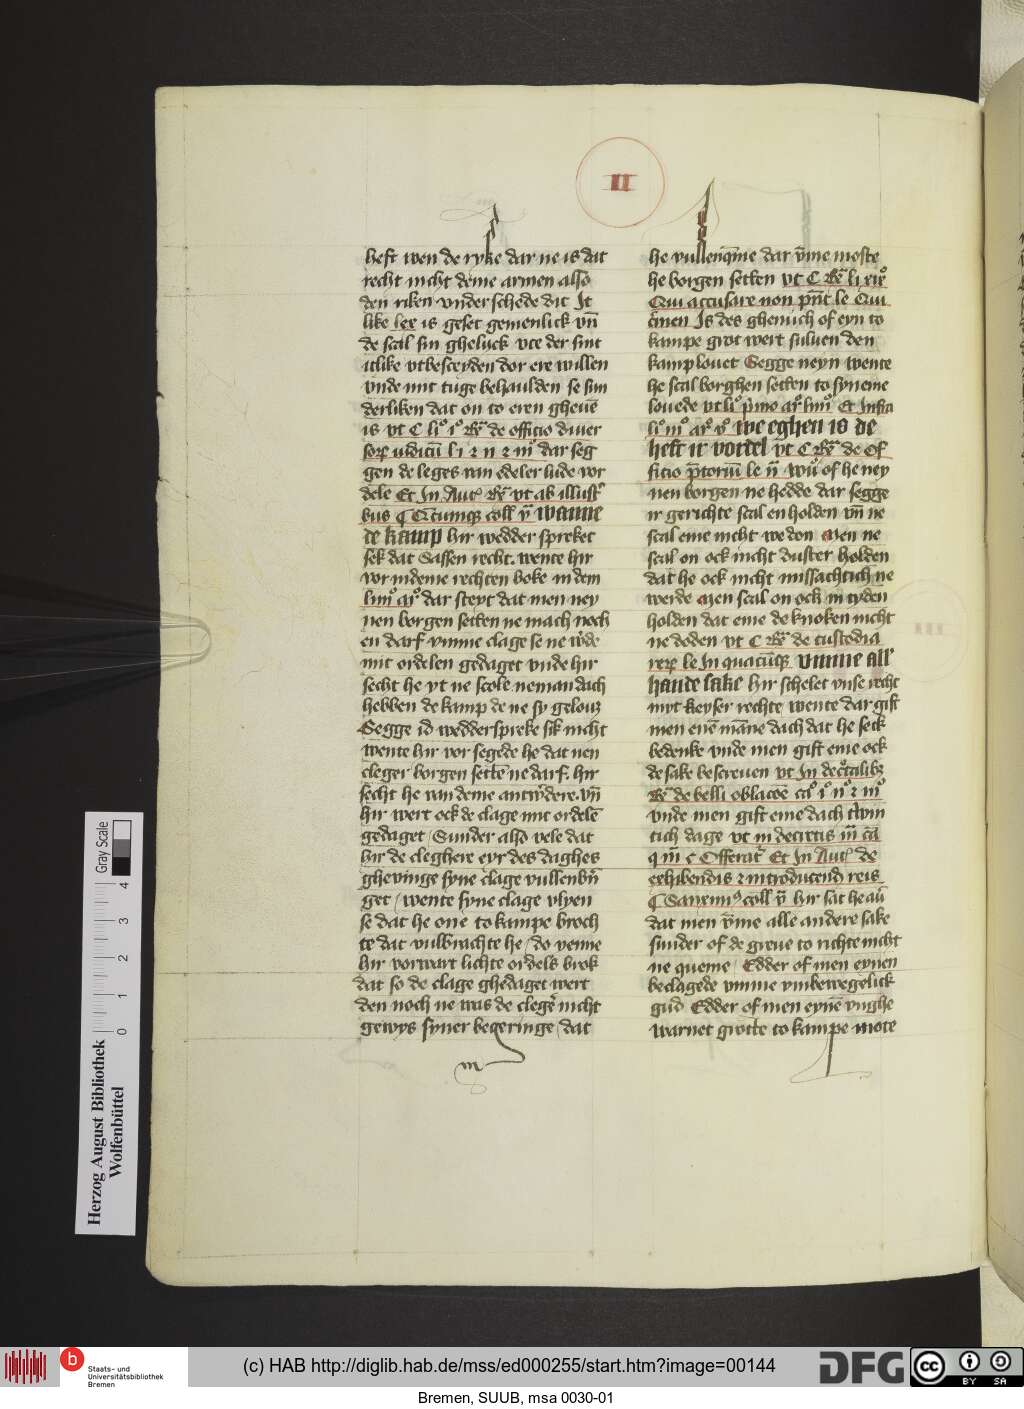 II
heft wen de ryke dar ne is dat
recht nicht deme armen also
den riken vnderschede dit It
like lex is geset gemenlick vn̄
de scal sin ghelyck vte der sint
itlike vtbesceyden dor ere willen
vnde mit tuge behaulden se sun
derliken dat on to eren gheuē
is vt C li° i° de officio diuer
dar seg
gen de leges van edeler lude vor
dele Et In Aut vt ab illustr
bus coll wanne
de kamp hir wedder spreket
sek dat Sassen recht. wente hir
vor in deme rechten boke in dem
dar steyt dat men ney
nen borgen setten ne mach noch
en darf vmme clage se ne
mit ordelen gedaget vnde hir
secht he yt ne scole neman dach
hebben de kamp de ne sy gelouꝫ
Segge id wedderspreke sik nicht
wente hir vor segede he dat nen
cleger borgen settē ne darf. hir
secht he van deme antwerdere. vn̄
hir wert ock de clage mit ordelē
gedaget Sunder also vele dat
hir de cleghere eyr des daghes
ghevinge syne clage vullenbrī
get / wente syne clage vlyen
se dat he one to kampe broch
te dat vulbrachte he / do venne
hir vorwart lichte ordels brok
dat so de clage ghedaget wert
den noch ne was de cleger nicht
gewys syner begeringe / dat
he vullenqueme dar vmme moste
he borgen setten vt C li xix°
Qui accusare non le Qui
crimen Is des ghenuch of eyn to
kampe grot wert suluen den
kamp louet Segge neyn wente
he scal borghen setten to syneme
louede vt li° primo Et Infra
li° iii° ar° v° we eghen is de
heft ir vordel vt C de of
ficio le of he ney
nen borgen ne hedde dar segge
ir gerichte scal en holden vn̄ ne
scal eme nicht we don Men ne
scal on ock nicht duster holden
dat he ock nicht missachtich ne
werde Men scal on ock in tyden
holden dat eme de knoken nicht
ne doden vt C de custodia
le In vmme all
hande sake hir schelet vnse recht
myt keyser rechte wente dar gift
men enē māne dach dat he seck
bedenke vnde men gift eme ock
de sake bescreuen vt In
de belli
vnde men gift eme dach twin
tich dage vt in decretis
Et In Aut de
exhibendis ⁊ introducend reis
coll hir sat he
dat men vmme alle andere sake
sunder of de greue to richte nicht
ne queme / Edder of men eynen
beclagede vmme vnbewegelick
gud Edder of men eynē vnghe
warnet grotte to kampe mote
Herzog August Bibliothek
Wolfenbüttel
Gray Scale
0 1 2 3 4
b
Staats- und
Universitätsbibliothek
Bremen
(c) HAB http://diglib.hab.de/mss/ed000255/start.htm?image=00144
DFG
cc BY SA
Bremen, SUUB, msa 0030-01